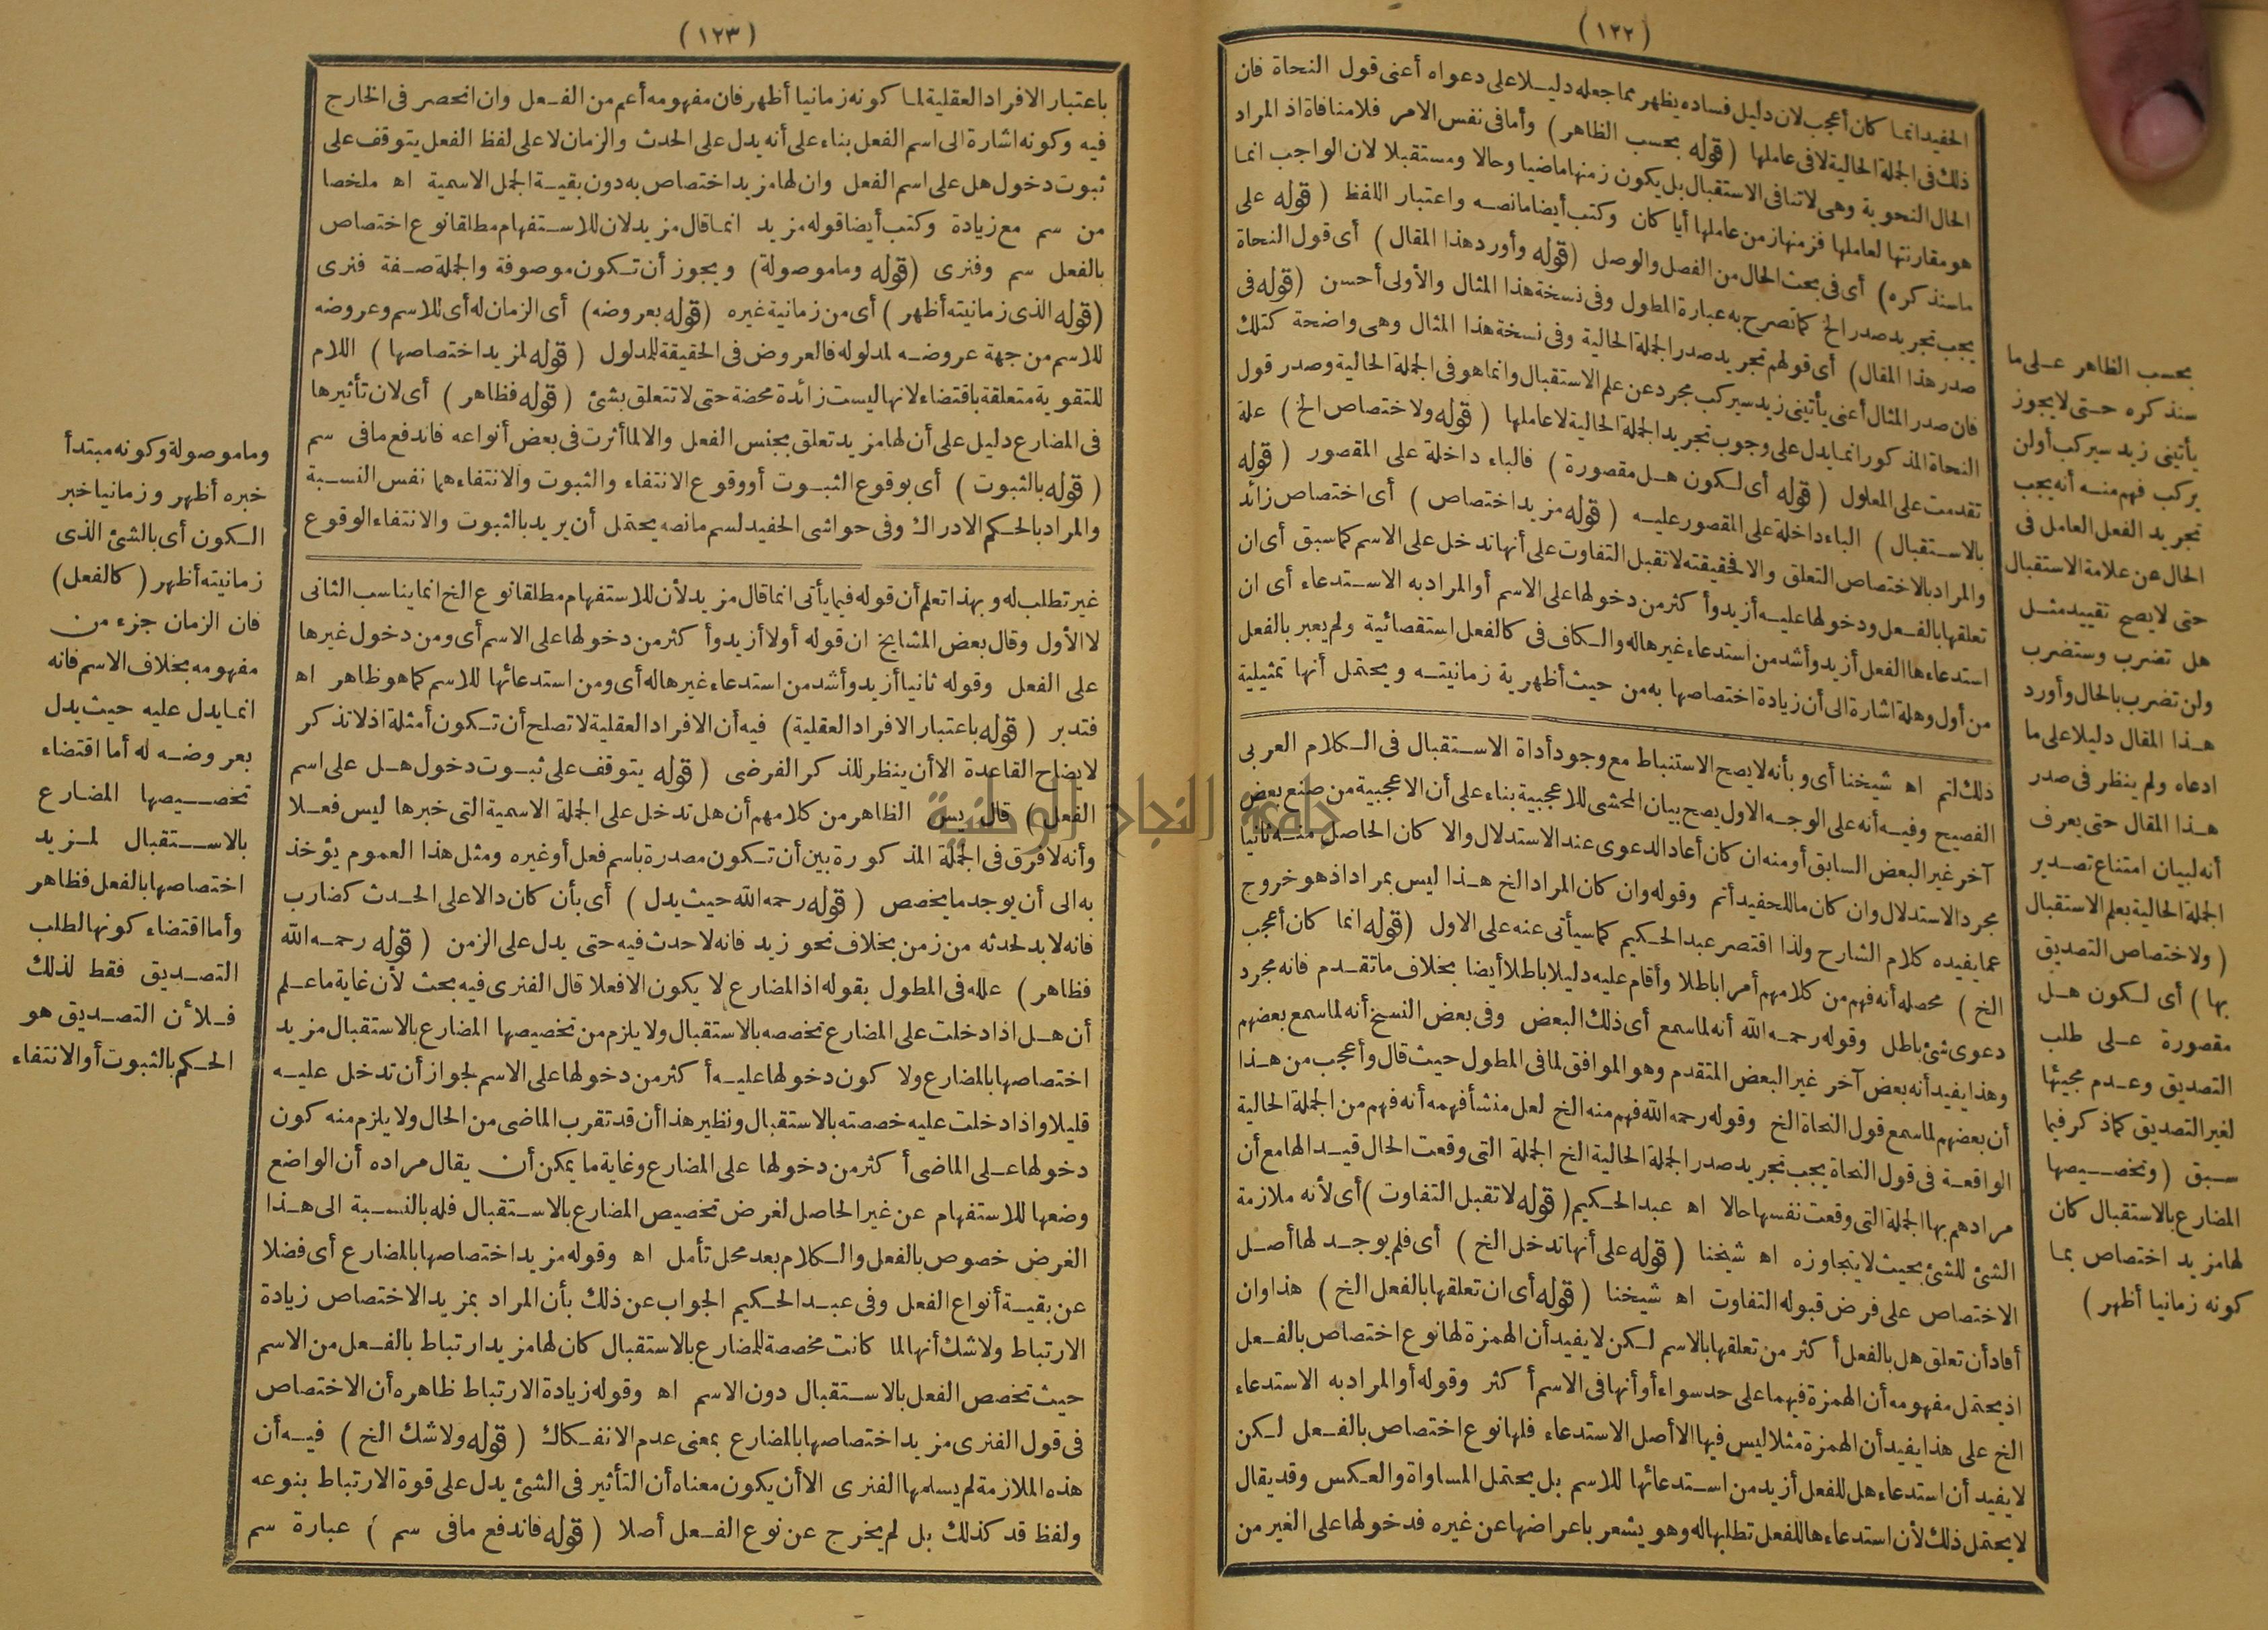 (١٢٢)
الحفيد انما كان أعجب لان دليل فساده يظهر مما جعله دليلا على دعواه أعنى قول النحاة فان
ذلك فى الجملة الحالية لا فى عاملها (قوله بحسب الظاهر) وأما فى نفس الامر فلا منافاة اذ المراد
الحال النحوية وهى لا تنافى الاستقبال بل يكون زمنها ماضيا وحالا ومستقبلا لان الواجب انما
هو مقارنتها لعاملها فزمنها زمن عاملها أيا كان وكتب أيضا مانصه واعتبار اللفظ (قوله على
ما سنذكره) أى فى بحث الحال من الفصل والوصل (قوله وأورد هذا المقال) أى قول النحاة
يجب تجريد صدر الخ كما تصرح به عبارة المطول وفى نسخة هذا المثال والأولى أحسن (قوله فى
صدر هذا المقال) أى قولهم تجريد صدر الجملة الحالية وفى نسخة هذا المثال وهى واضحة كتلك
فان صدر المثال أعنى يأتينى زيد سيركب مجرد عن علم الاستقبال وانما هو فى الجملة الحالية وصدر قول
النحاة المذكور انما يدل على وجوب تجريد الجملة الحالية لا عاملها (قوله ولاختصاص الخ) علة
تقدمت على المعلول (قوله أى لكون هل مقصورة) فالباء داخلة على المقصور (قوله
بالاستقبال) الباء داخلة على المقصور عليه (قوله مزيد اختصاص) أى اختصاص زائد
والمراد بالاختصاص التعلق والا فحقيقته لا تقبل التفاوت على أنها تدخل على الاسم كما سبق أى ان
تعلقها بالفعل ودخولها عليه أزيد وأكثر من دخولها على الاسم أو المراد به الاستدعاء أى ان
استدعاءها الفعل أزيد وأشد من استدعاء غيرها له والكاف فى كالفعل استقصائية ولم يعبر بالفعل
من أول وهلة اشارة الى أن زيادة اختصاصها به من حيث أظهرية زمانيته ويحتمل أنها تمثيلية
ذلك لتم اه شيخنا أى وبأنه لا يصح الاستنباط مع وجود أداة الاستقبال فى الكلام العربى
الفصيح وفيه أنه على الوجه الاول يصح بيان المحشى للاعجبية بناء على أن الاعجبية من صنع بعض
آخر غير البعض السابق أو منه ان كان أعاد الدعوى عند الاستدلال والا كان الحاصل منه ثانيا
مجرد الاستدلال وان كان ما للحفيد أتم وقوله وان كان المراد الخ هذا ليس بمراد اذ هو خروج
عما يفيده كلام الشارح ولذا اقتصر عبد الحكيم كما سيأتى عنه على الاول (قوله انما كان أعجب
الخ) محصله أنه فهم من كلامهم أمرا باطلا وأقام عليه دليلا باطلا أيضا بخلاف ما تقدم فانه مجرد
دعوى شئ باطل وقوله رحمه الله أنه لما سمع أى ذلك البعض وفى بعض النسخ أنه لما سمع بعضهم
وهذا يفيد أنه بعض آخر غير البعض المتقدم وهو الموافق لما فى المطول حيث قال وأعجب من هذا
أن بعضهم لما سمع قول النحاة الخ وقوله رحمه الله فهم منه الخ لعل منشأ فهمه أنه فهم من الجملة الحالية
الواقعة فى قول النحاة يجب تجريد صدر الجملة الحالية الخ الجملة التى وقعت الحال قيدا لها مع أن
مرادهم بها الجملة التى وقعت نفسها حالا اه عبد الحكيم (قوله لا تقبل التفاوت) أى لأنه ملازمة
الشئ للشئ بحيث لا يتجاوزه اه شيخنا (قوله على أنها تدخل الخ) أى فلم يوجد لها أصل
الاختصاص على فرض قبوله التفاوت اه شيخنا (قوله أى ان تعلقها بالفعل الخ) هذا وان
أفاد أن تعلق هل بالفعل أكثر من تعلقها بالاسم لكن لا يفيد أن الهمزة لها نوع اختصاص بالفعل
اذ يحتمل مفهومه أن الهمزة فيهما على حد سواء أو أنها فى الاسم أكثر وقوله أو المراد به الاستدعاء
الخ على هذا يفيد أن الهمزة مثلا ليس فيها الا أصل الاستدعاء فلها نوع اختصاص بالفعل لكن
لا يفيد أن استدعاء هل للفعل أزيد من استدعائها للاسم بل يحتمل المساواة والعكس وقد يقال
لا يحتمل ذلك لأن استدعاءها للفعل تطلبها له وهو يشعر باعراضها عن غيره فدخولها على الغير من
بحسب الظاهر على ما
سنذكره حتى لا يجوز
يأتينى زيد سيركب أو لن
يركب فهم منه أنه يجب
تجريد الفعل العامل فى
الحال عن علامة الاستقبال
حتى لا يصح تقييد مثل
هل تضرب وستضرب
ولن تضرب بالحال وأورد
هذا المقال دليلا على ما
ادعاه ولم ينظر فى صدر
هذا المقال حتى يعرف
أنه لبيان امتناع تصدير
الجملة الحالية بعلم الاستقبال
(ولاختصاص التصديق
بها) أى لكون هل
مقصورة على طلب
التصديق وعدم مجيئها
لغير التصديق كما ذكر فيما
سبق (وتخصيصها
المضارع بالاستقبال كان
لها مزيد اختصاص بما
كونه زمانيا أظهر)
(١٢٣)
باعتبار الافراد العقلية لما كونه زمانيا أظهر فان مفهومه أعم من الفعل وان انحصر فى الخارج
فيه وكونه اشارة الى اسم الفعل بناء على أنه يدل على الحدث والزمان لا على لفظ الفعل يتوقف على
ثبوت دخول هل على اسم الفعل وان لها مزيد اختصاص به دون بقية الجمل الاسمية اه ملخصا
من سم مع زيادة وكتب أيضا قوله مزيد انما قال مزيد لان للاستفهام مطلقا نوع اختصاص
بالفعل سم وفنرى (قوله وما موصولة) ويجوز أن تكون موصوفة والجملة صفة فنرى
(قوله الذى زمانيته أظهر) أى من زمانية غيره (قوله بعروضه) أى الزمان له أى للاسم وعروضه
للاسم من جهة عروضه لمدلوله فالعروض فى الحقيقة للمدلول (قوله لمزيد اختصاصها) اللام
للتقوية متعلقة باقتضاء لانها ليست زائدة محضة حتى لا تتعلق بشئ (قوله فظاهر) أى لان تأثيرها
فى المضارع دليل على أن لها مزيد تعلق بجنس الفعل والا لما أثرت فى بعض أنواعه فاندفع ما فى سم
(قوله بالثبوت) أى بوقوع الثبوت أو وقوع الانتفاء والثبوت والانتفاء هما نفس النسبة
والمراد بالحكم الادراك وفى حواشى الحفيد لسم مانصه يحتمل أن يريد بالثبوت والانتفاء الوقوع
غير تطلب له وبهذا تعلم أن قوله فيما يأتى انما قال مزيد لأن للاستفهام مطلقا نوع الخ انما يناسب الثانى
لا الأول وقال بعض المشايخ ان قوله أولا أزيد وأكثر من دخولها على الاسم أى ومن دخول غيرها
على الفعل وقوله ثانيا أزيد وأشد من استدعاء غيرها له أى ومن استدعائها للاسم كما هو ظاهر اه
فتدبر (قوله باعتبار الافراد العقلية) فيه أن الافراد العقلية لا تصلح أن تكون أمثلة اذ لا تذكر
لا يضاح القاعدة الا أن ينظر للذكر الفرضى (قوله يتوقف على ثبوت دخول هل على اسم
الفعل) قال يس الظاهر من كلامهم أن هل تدخل على الجملة الاسمية التى خبرها ليس فعلا
وأنه لا فرق فى الجملة المذكورة بين أن تكون مصدرة باسم فعل أو غيره ومثل هذا العموم يؤخذ
به الى أن يوجد ما يخصص (قوله رحمه الله حيث يدل) أى بأن كان دالا على الحدث كضارب
فانه لا بد لحدثه من زمن بخلاف نحو زيد فانه لا حدث فيه حتى يدل على الزمن (قوله رحمه الله
فظاهر) علله فى المطول بقوله اذ المضارع لا يكون الا فعلا قال الفنرى فيه بحث لأن غاية ما علم
أن هل اذا دخلت على المضارع تخصصه بالاستقبال ولا يلزم من تخصيصها المضارع بالاستقبال مزيد
اختصاصها بالمضارع ولا كون دخولها عليه أكثر من دخولها على الاسم لجواز أن تدخل عليه
قليلا واذا دخلت عليه خصصته بالاستقبال ونظير هذا أن قد تقرب الماضى من الحال ولا يلزم منه كون
دخولها على الماضى أكثر من دخولها على المضارع وغاية ما يمكن أن يقال مراده أن الواضع
وضعها للاستفهام عن غير الحاصل لغرض تخصيص المضارع بالاستقبال فله بالنسبة الى هذا
الغرض خصوص بالفعل والكلام بعد محل تأمل اه وقوله مزيد اختصاصها بالمضارع أى فضلا
عن بقية أنواع الفعل وفى عبد الحكيم الجواب عن ذلك بأن المراد بمزيد الاختصاص زيادة
الارتباط ولا شك أنها لما كانت مخصصة للمضارع بالاستقبال كان لها مزيد ارتباط بالفعل من الاسم
حيث تخصص الفعل بالاستقبال دون الاسم اه وقوله زيادة الارتباط ظاهره أن الاختصاص
فى قول الفنرى مزيد اختصاصها بالمضارع بمعنى عدم الانفكاك (قوله ولا شك الخ) فيه أن
هذه الملازمة لم يسلمها الفنرى الا أن يكون معناه أن التأثير فى الشئ يدل على قوة الارتباط بنوعه
ولفظ قد كذلك بل لم يخرج عن نوع الفعل أصلا (قوله فاندفع ما فى سم) عبارة سم
وما موصولة وكونه مبتدأ
خبره أظهر وزمانيا خبر
الكون أى بالشئ الذى
زمانيته أظهر (كالفعل)
فان الزمان جزء من
مفهومه بخلاف الاسم فانه
انما يدل عليه حيث يدل
بعروضه له أما اقتضاء
تخصيصها المضارع
بالاستقبال لمزيد
اختصاصها بالفعل فظاهر
وأما اقتضاء كونها لطلب
التصديق فقط لذلك
فلأن التصديق هو
الحكم بالثبوت أو الانتفاء
جامعة النجاح الوطنية